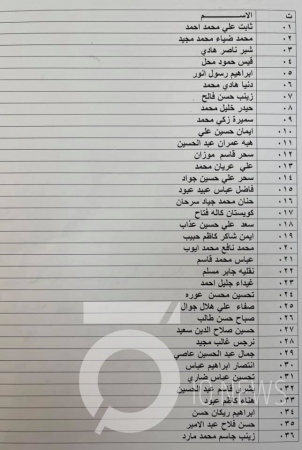 ت الاســـــــم
٠١ ثابت علي محمد احمد
٠٢ محمد ضياء محمد مجيد
٠٣ شير ناصر هادي
٠٤ قيس حمود محل
٠٥ ابراهيم رسول انور
٠٦ دنيا هادي محمد
٠٧ زينب حسن فالح
٠٨ حيدر خليل محمد
٠٩ سميرة زكي محمد
٠١٠ ايمان حسين علي
٠١١ هبه عمران عبد الحسين
٠١٢ سحر قاسم موزان
٠١٣ علي عريان محمد
٠١٤ سحر علي حسين جواد
٠١٥ فاضل عباس عبيد عبود
٠١٦ حنان محمد جياد سرحان
٠١٧ كويستان كاكه فتاح
٠١٨ سعد علي حسين عذاب
٠١٩ ايمن شاكر كاظم حبيب
٠٢٠ محمد نافع محمد ايوب
٠٢١ عباس محمد قاسم
٠٢٢ نقليه جابر مسلم
٠٢٣ غيداء جليل احمد
٠٢٤ تحسين محسن عوره
٠٢٥ صفاء علي هلال جوال
٠٢٦ صباح حسن طالب
٠٢٧ حسين صلاح الدين سعيد
٠٢٨ نرجس غالب مجيد
٠٢٩ جمال عبد الحسين عاصي
٠٣٠ انتصار ابراهيم عباس
٠٣١ تحسين عباس ضاري
٠٣٢ بشرى قاسم عبد الحسين
٠٣٣ هناء كاظم عبود
٠٣٤ ابراهيم ريكان حسن
٠٣٥ حسن فلاح عبد الامير
٠٣٦ زينب جاسم محمد مارد